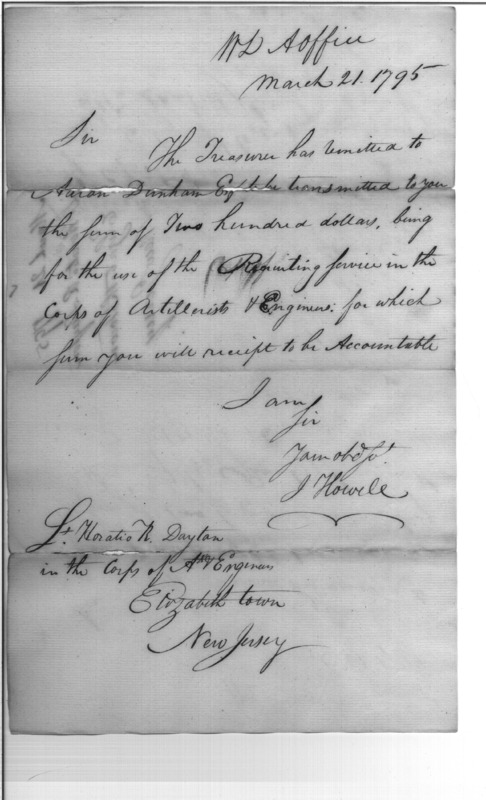 WD A Office
March 21. 1795
Sir
The Treasurer has remitted to
Aaron Dunham Esqr to be transmitted to you
the sum of Two hundred dollars, being
for the use of the Recruiting service in the
Corps of Artillerists & Engineers: for which
sum you will receipt to be Accountable
I am
Sir
Your obd St.
J Howell
Lt. Horatio R. Dayton
in the Corps of Art & Engineers
Elizabeth town
New Jersey